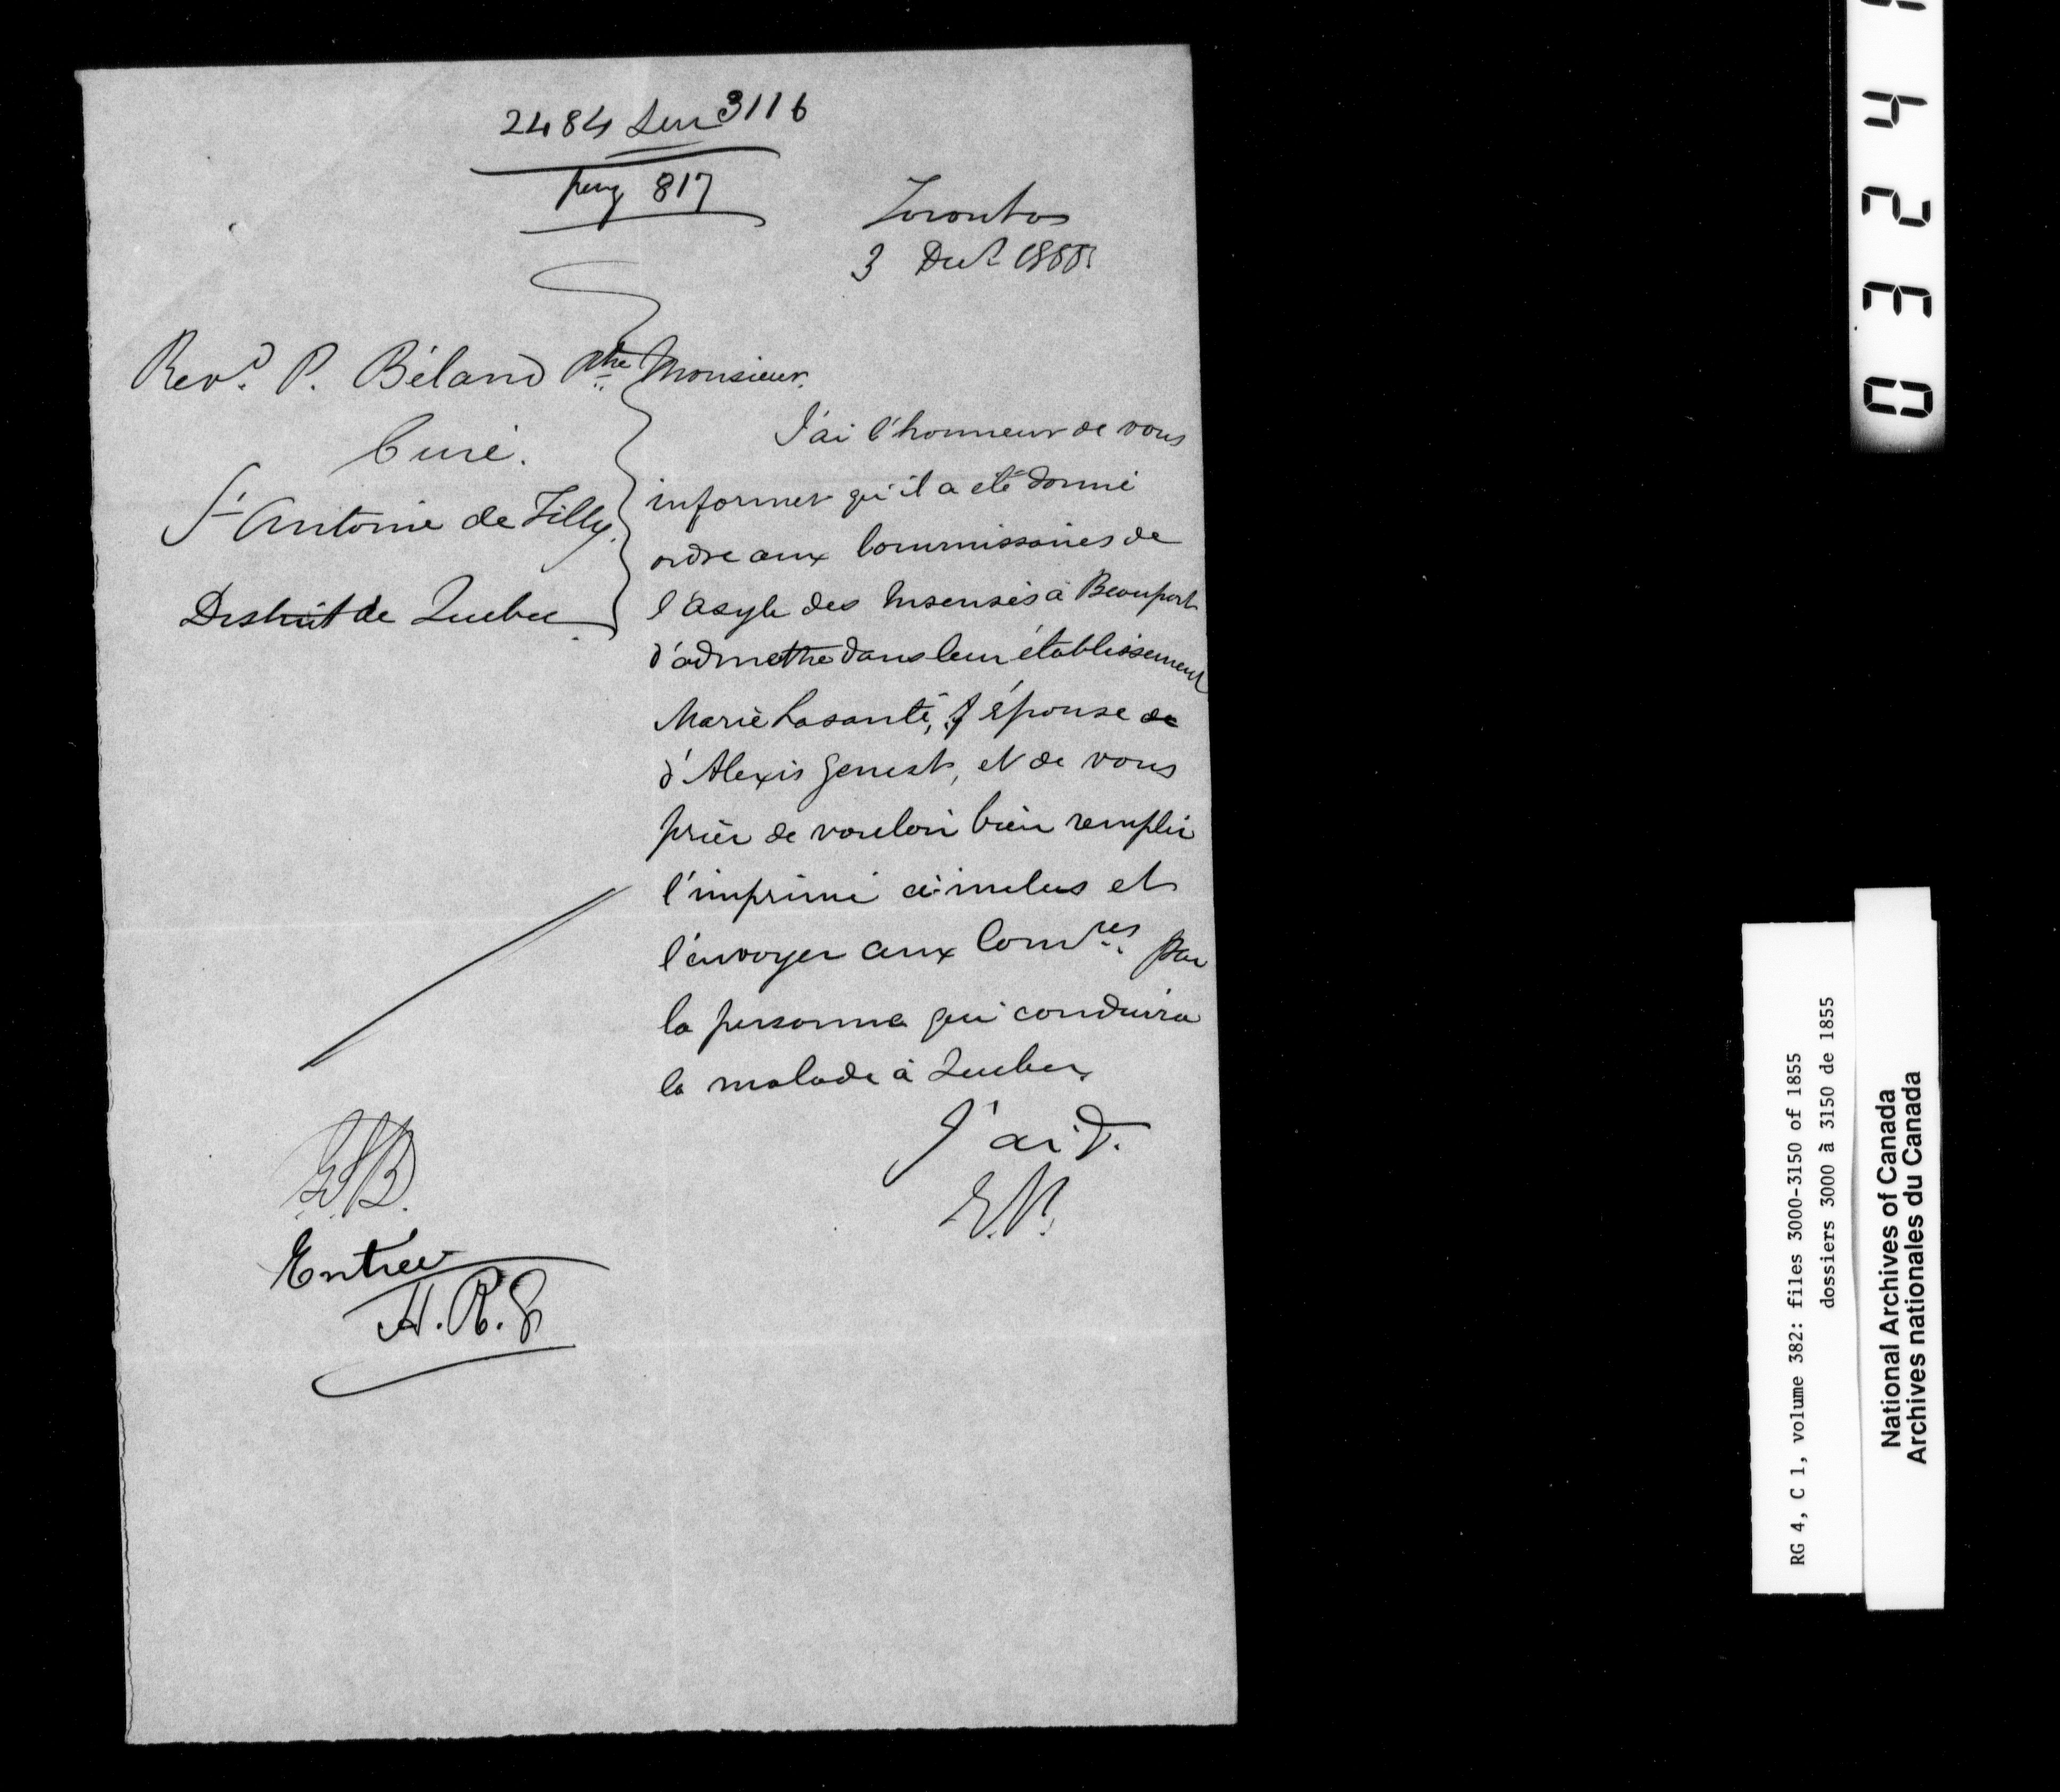 2484 sur 3116
pag 817
Toronto
3 Dec.r 1855.
Rev.d P. Béland Ptre
Curé.
St Antoine de Tilly.
District de Quebec.
Monsieur.
J'ai l'honneur de vous
informer qu'il a été donné
ordre aux Commissaires de
l'asyle des Insensés à Beauport
d'admettre dans leur établissement
Marie Lasanté, épouse de
d'Alexis Genest, et de vous
prier de vouloir bien remplir
l'imprimé ci-inclus et
l'envoyer aux Comres par
la personne qui conduira
la malade à Quebec,
J'ai &.
E.P.
Entrée
H.R.
RG 4, C 1, volume 382: files 3000-3150 of 1855
dossiers 3000 à 3150 de 1855
National Archives of Canada
Archives nationales du Canada